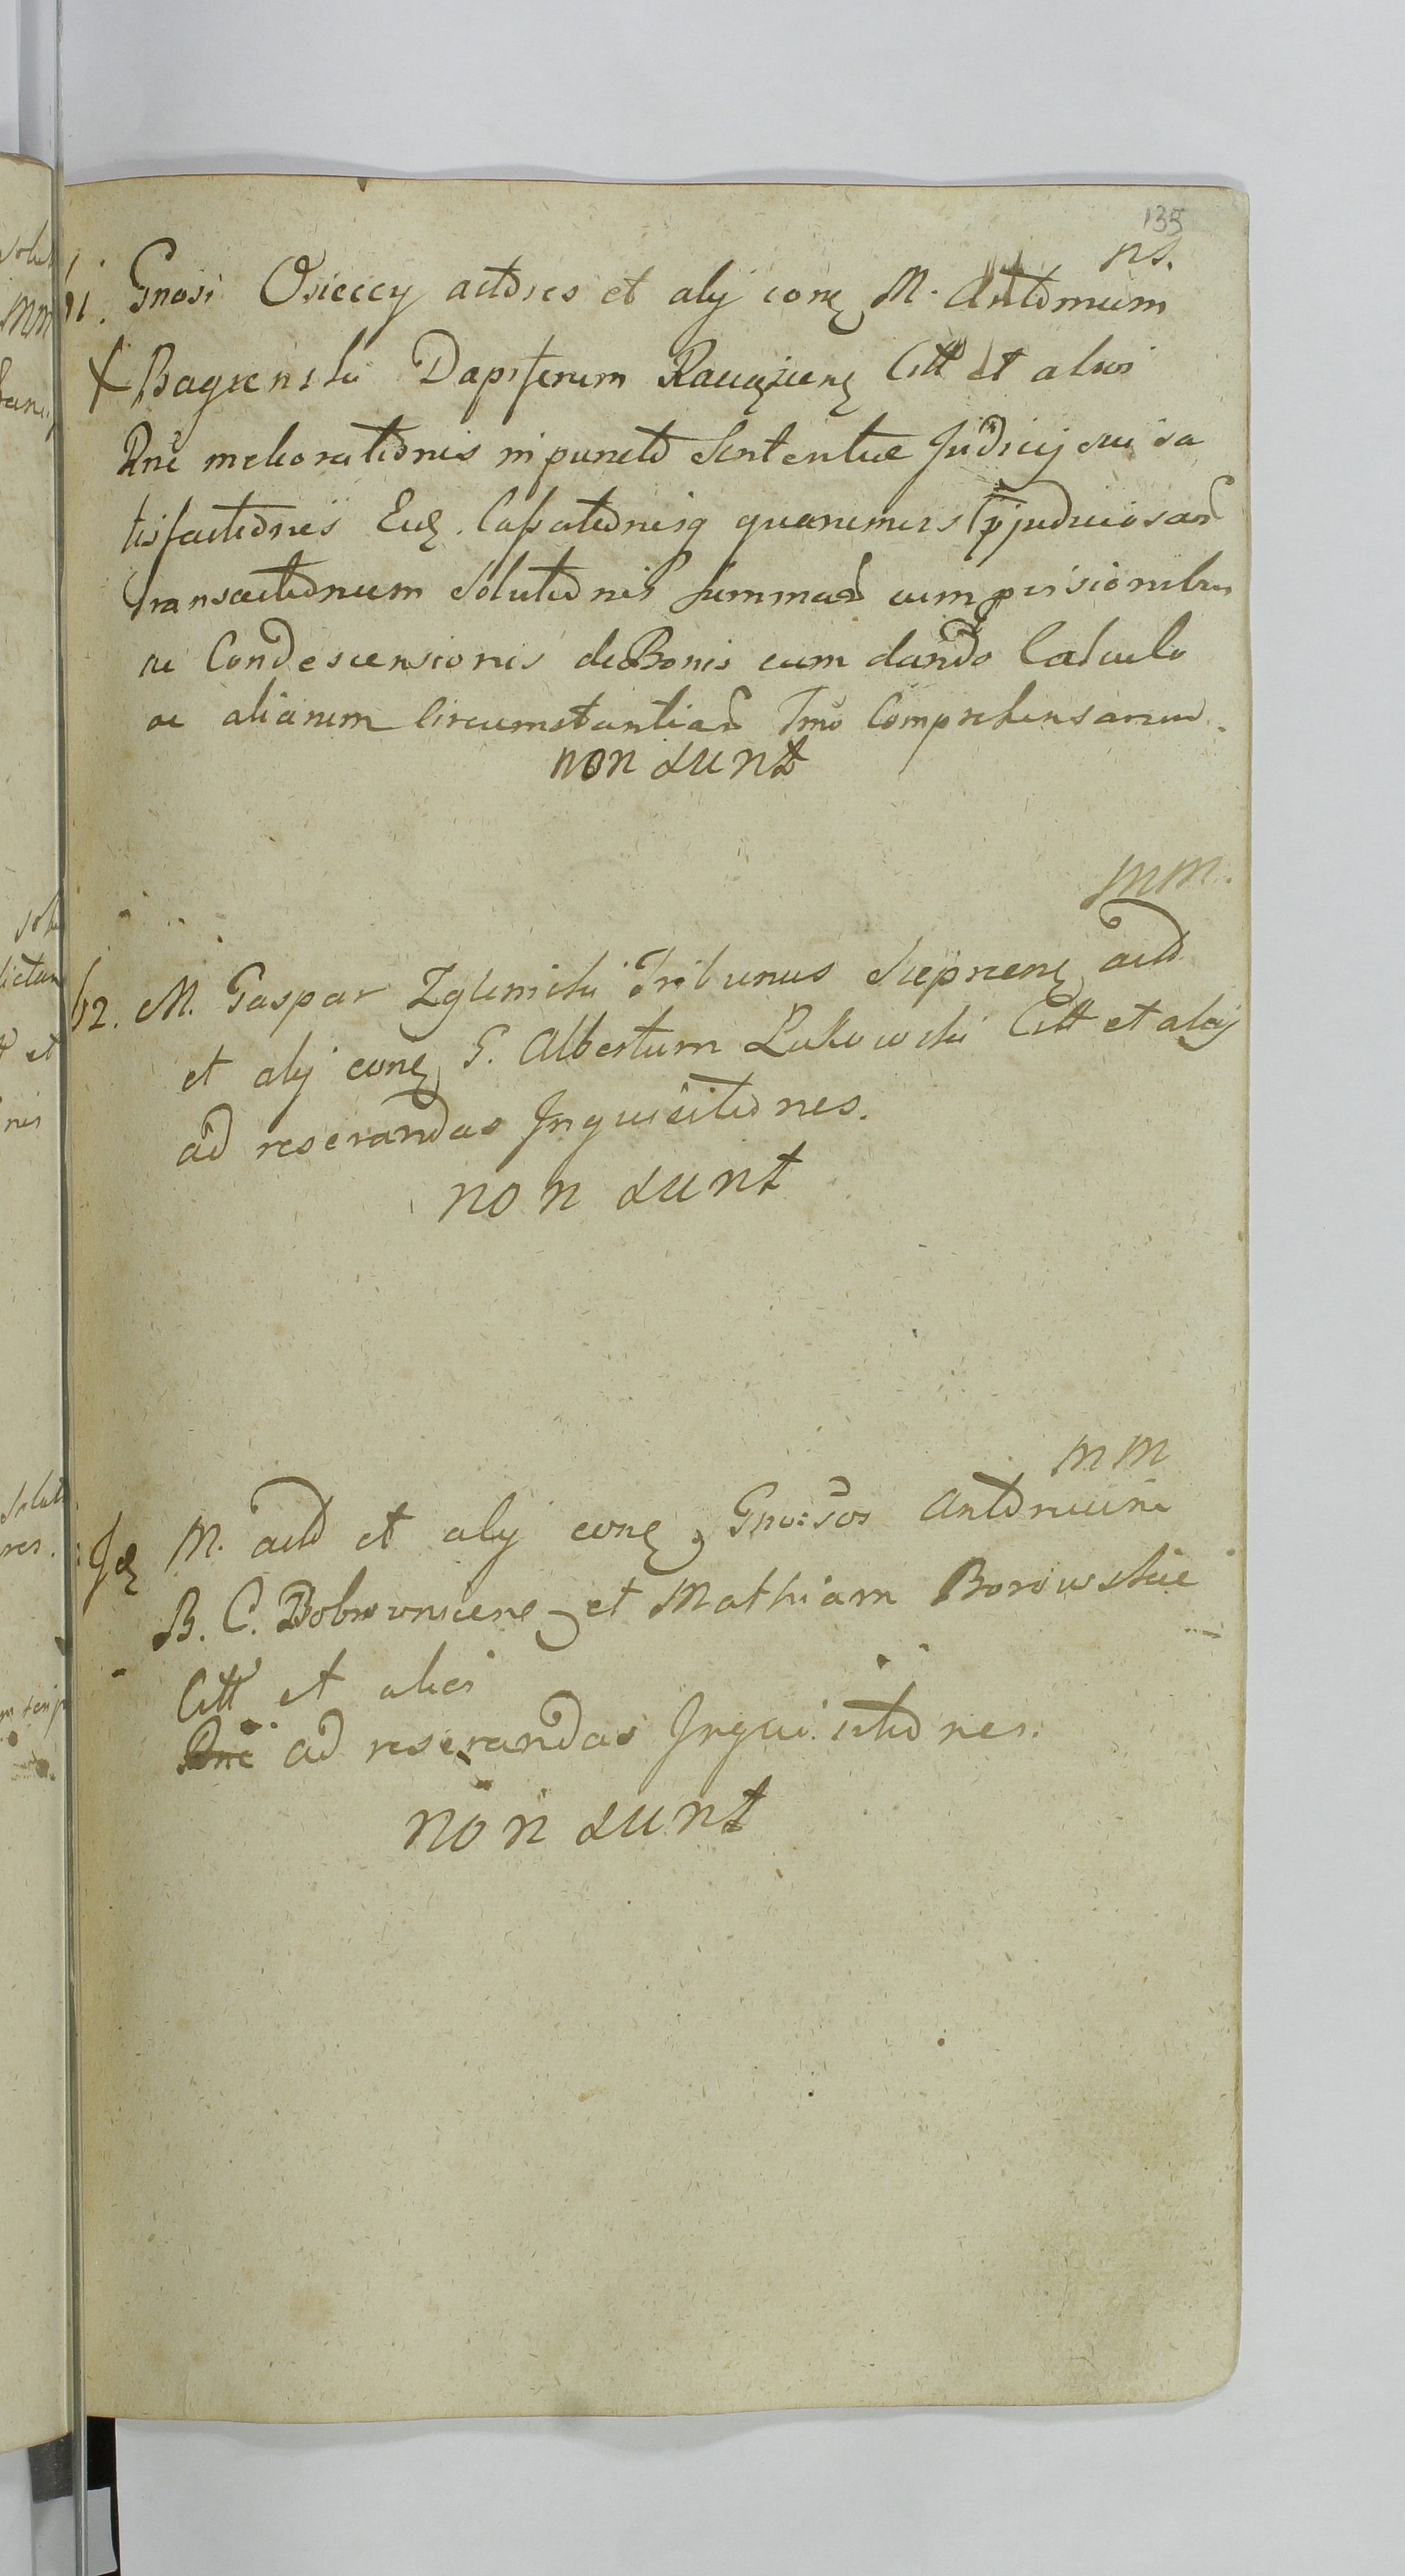 135
ns.
61. Gnosi Osieccy actores et alij conẽ M. Antonium
Bagienski Dapiferum Raciązienẽ Citt et alios
Rnẽ meliorationis in puncto Sententiae Judicij sui sa
tisfactionis Cassationisq quarumvis pjudiciosar
Transactionum Solutionis Summar cum provisionibus
ac Condescensionis de Bonis cum dando Calculo
ac aliarum Circumstantiar Tmo Comprehensarum.
non sunt
MM.
62. M. Gaspar Zglinicki Tribunus Sieprcenẽ actor
et alij conẽ G. Albertum Lukowski Citt et alij
ad reserandas Inquisitiones.
non sunt
MM
Jẽ M. actor et alij conẽ Gnosos Antonium
B. C. Bobrownicenẽ et Mathiam Borowskie
Citt et alios
Rnẽ ad reserandas Inquisitiones.
non sunt